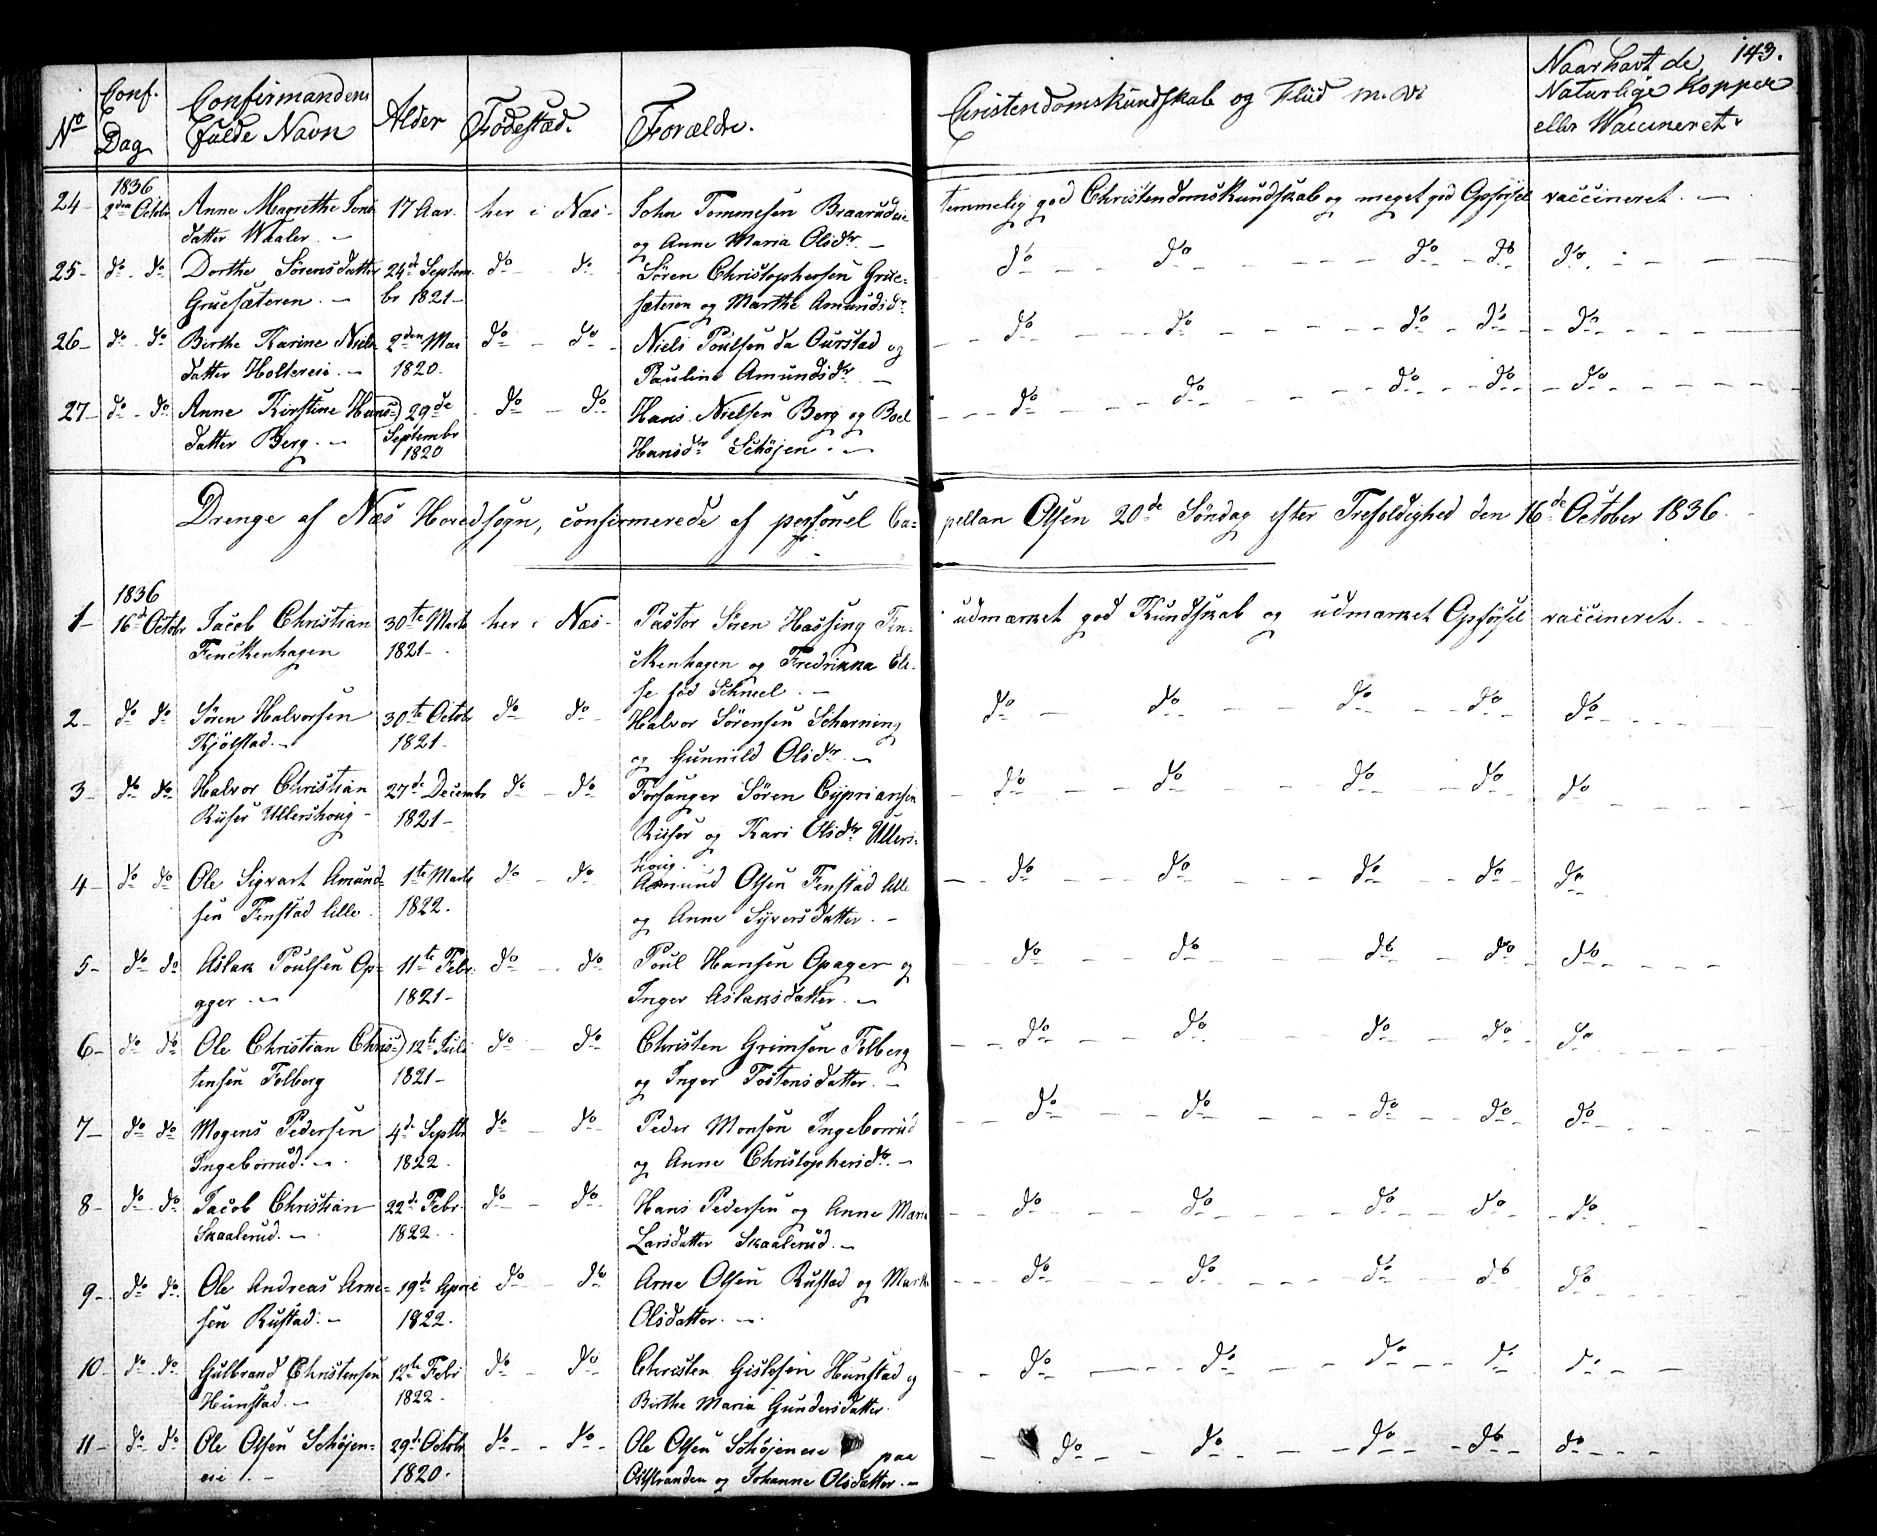 143.
No Conf. Dag Confirmandens fulde Navn Alder Fødestæd. Forældre. Christendomskundskab og Fliid m. v. Naar havt de Naturlige Kopper eller Vaccineret.
24 1836 2den Octobr Anne Magrethe Jons 17 Aar. her i Næs John Tommesen Braaruders temmelig god Christendomskundskab og meget god Opførsel vaccineret. –
datter Waaler. – og Anne Maria Olsdr. –
25 – do do Dorthe Sørensdatter 24de Septem do – do Søren Christophersen Grue- do – – do – – – do – do do. – –
Gruesæteren. – br 1821 – sæteren og Marthe Amundsdr
26 – do – do Birthe Karine Niels 2den Mai do – do Niels Poulsen da Aurstad og do – – do – – – do – do – do – – –
datter Holtereie. – 1820. Pauline Amundsdr. –
27 – do – do Anne Kirstine Hans 29de do – do Hans Nielsen Berg og Boel do – – do – – – do – do – do – – –
datter Berg. – Septembr 1820 Hansdr Schøjen. –
Drenge af Næs Hovedsogn, confirmerede af personel Ca- pellan Olsen 20de Søndag efter Trefoldighed den 16de October 1836.
1 1836 16de Octobr Jacob Christian 30te Marts her i Næs – Pastor Søren Hassing Fin- udmærket god Kundskab og udmærket Opførsel vaccineret. –
Finckenhagen 1821 – ckenhagen og Fredrikka Eli-
se fød Schmel. –
2 – do do Søren Halvorsen 30te Octobr do do – Halvor Sørensen Scharning do – do – – do – do – do – – –
Kjølstad. – 1821 – og Gunnild Olsdr. –
3 – do do Halvor Christian 27de Decembr do – do Forsanger Søren Cypriansen – do – – do – – do – – do – do – – –
Riiser Ullershoug – 1821 – Riiser og Kari Olsdr Ullers-
houg.
4 – do do Ole Sigvart Amund- 1te Marts do – do Amund Olsen Fenstad lille – do – – do – – – do – do – do
sen Fenstad lille. 1822. og Anne Syversdatter. –
5 – do do Aslak Poulsen Op- 11te Febr. do – do Poul Hansen Opager og – do – – do – – do – do – do – – –
ager. – 1821 – Inger Aslaksdatter. –
6 – do do Ole Christian Chris- 12te Juli do – do Christen Grimsen Folberg – do – – do – – do – do – do – – –
tensen Folberg 1821 – og Inger Tostensdatter. –
7 – do do Mogens Pedersen 4de Septbr do – do – Peder Monsen Ingeborrud – do – – do – – do – – do – do – – –
Ingeborrud. – 1822. og Anne Christophersdr. –
8 – do do Jacob Christian 22de Febr. do – do – Hans Pedersen og Anne Maria – – do – – do – – – do – do – do – –
Skaalerud. – 1822. Larsdatter Skaalerud. –
9 – do do Ole Andreas Arne- 19de April do – do Arne Olsen Rustad og Marthe – – do – – do – – do – do – do – – –
sen Rustad. – 1822. Olsdatter. –
10 – do do Gulbrand Christensen 12te Febr do – do Christen Gislesen Hunstad og – – do – – do – – do – – do – do – – –
Hunstad. – 1822. Birthe Maria Gundersdatter.
11 – do do Ole Olsen Schøjen- 29de Octobr do – – do – Ole Olsen Schøjeneie paa – do – – do – – do – do – do – – –
eie. – 1820. Oilstranden og Johanne Olsdatter. –